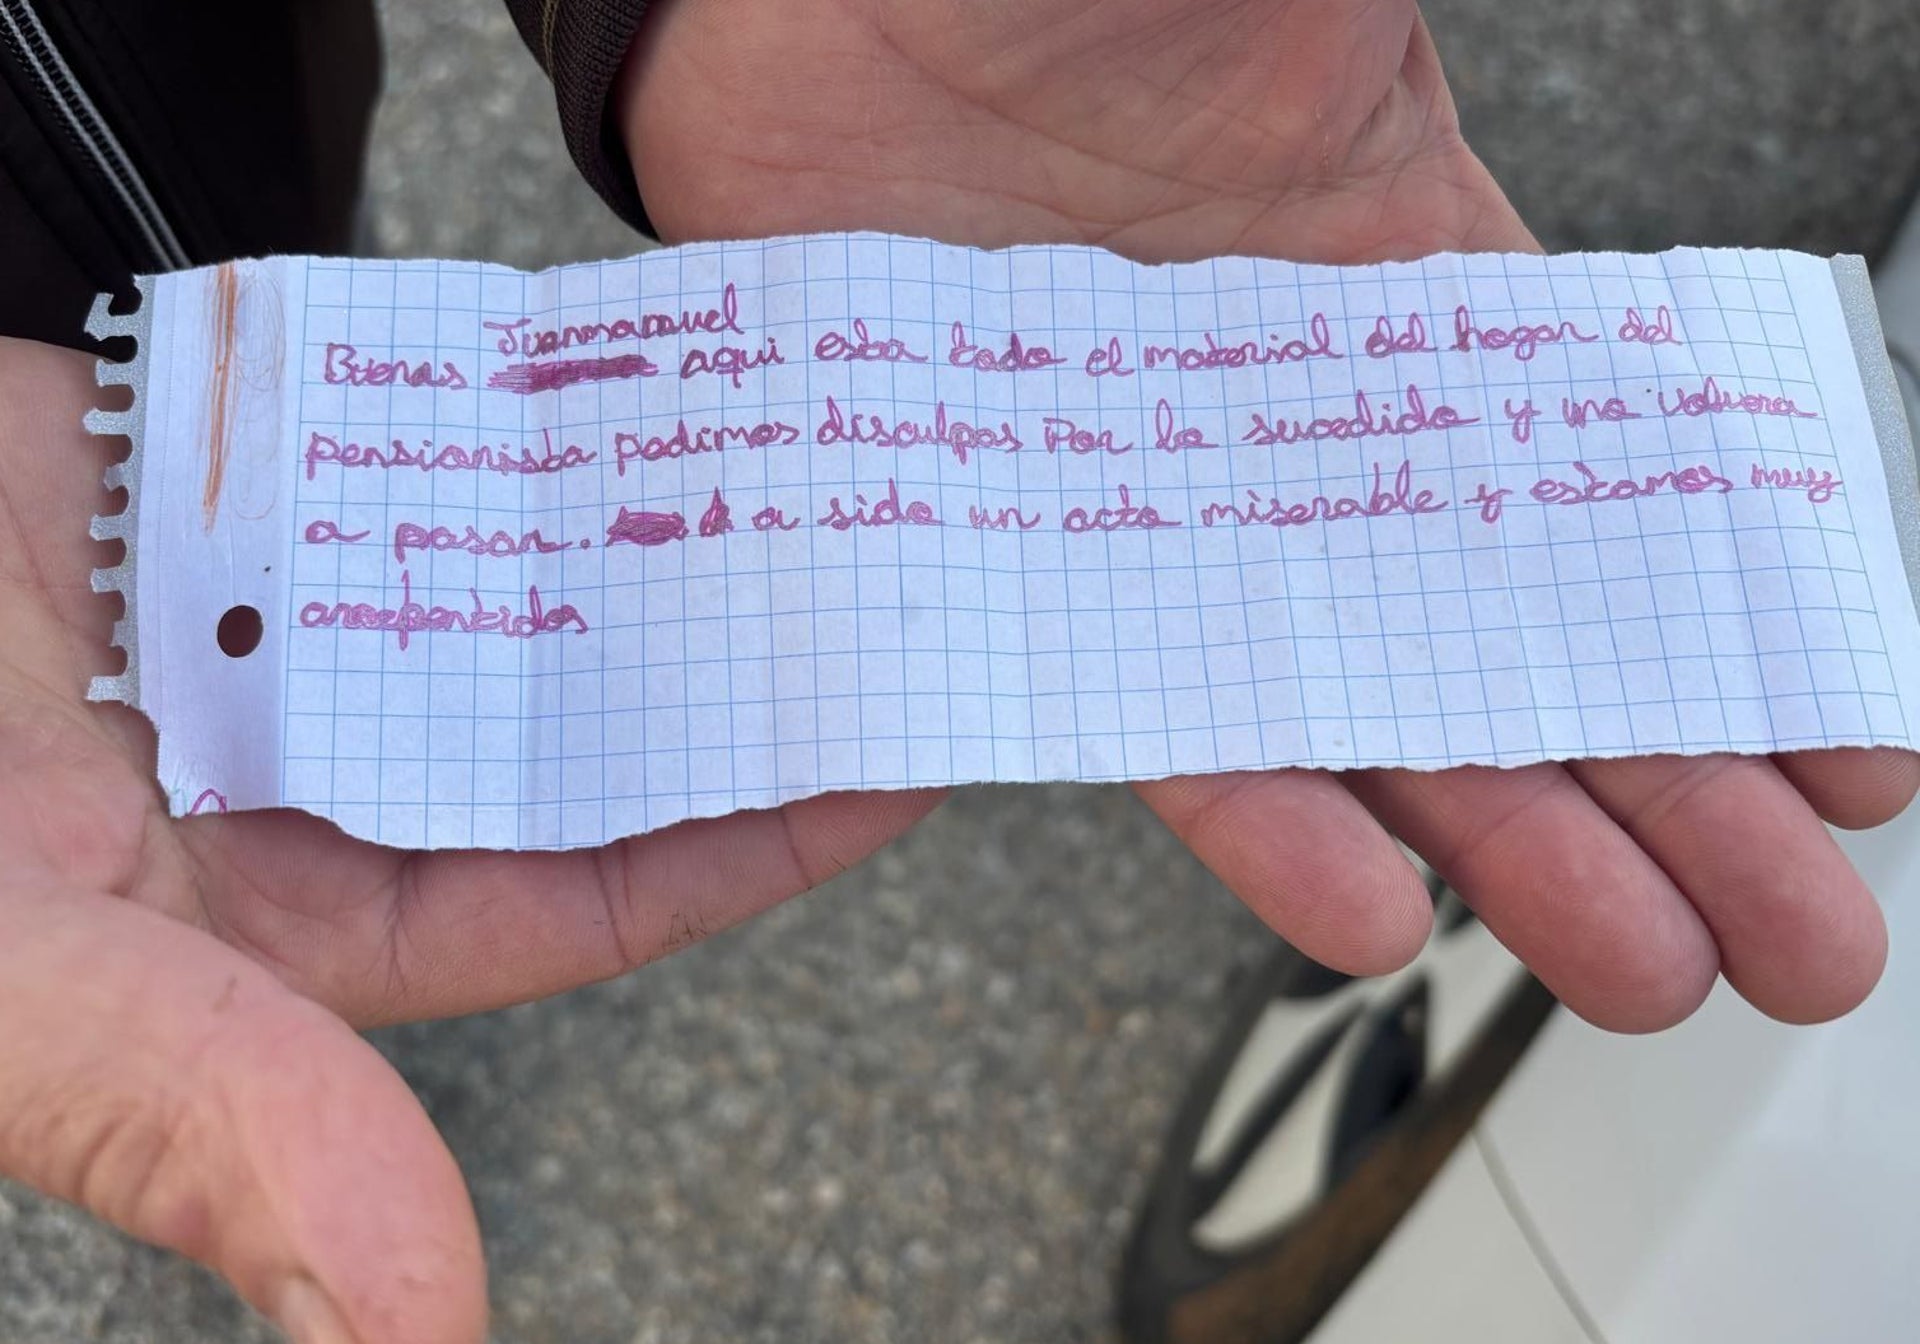 Buenas Juanmanuel aqui esta todo el material del hogar del
pensionista pedimos disculpas Por lo sucedido y no volvera
a pasar. a sido un acto miserable y estamos muy
arrepentidos